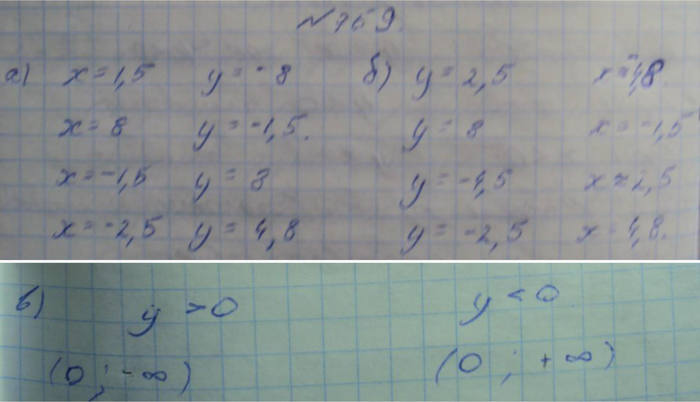 № 759.
а) x = 1,5 y = -8 б) y = 2,5 x = -4,8.
x = 8 y = -1,5. y = 8 x = -1,5
x = -1,5 y = 8 y = -1,5 x = 2,5
x = -2,5 y = 4,8 y = -2,5 x = 4,8.
в) y > 0 y < 0
(0 ; -∞) (0 ; +∞)